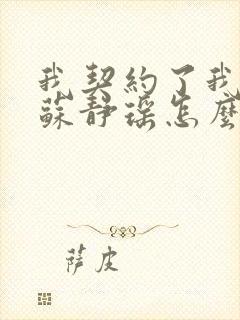 我契約了我
蘇靜瑤怎麼
薩皮